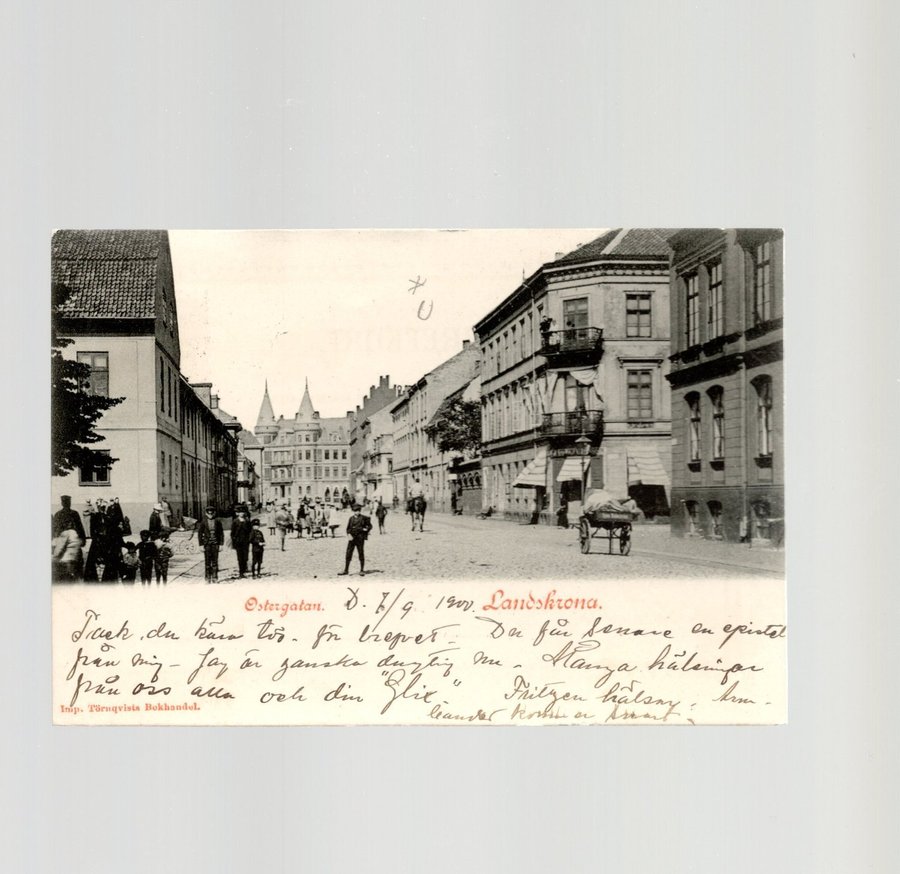 Östergatan. D. 7/9 1900. Landskrona.
Tack, du kära tös för brefvet. Du får senare en epistel
från mig – Jag är ganska duglig nu – Många hälsningar
från oss alla och din "Glix" Fritzen hälsar.
Imp. Törnqvists Bokhandel.
kommer snart –